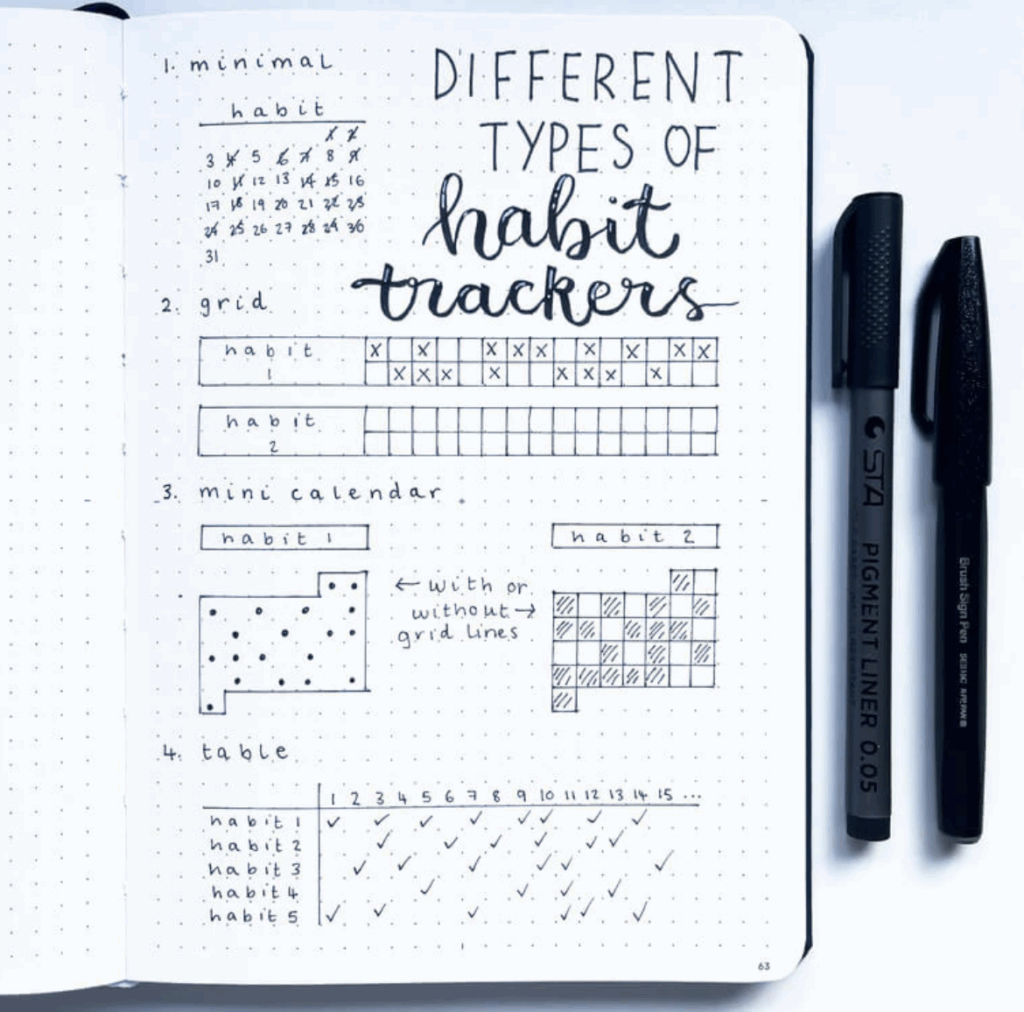 1. minimal
DIFFERENT
TYPES OF
habit
trackers
habit
1 2
3 4 5 6 7 8 9
10 11 12 13 14 15 16
17 18 19 20 21 22 23
24 25 26 27 28 29 30
31
2. grid
habit
1
X X X X X X X X X
X X X X X X X X
habit
2
3. mini calendar
habit 1
habit 2
← with or
without →
grid lines
4. table
1 2 3 4 5 6 7 8 9 10 11 12 13 14 15 ...
habit 1 ✓ ✓ ✓ ✓ ✓ ✓ ✓ ✓
habit 2 ✓ ✓ ✓ ✓ ✓ ✓
habit 3 ✓ ✓ ✓ ✓ ✓ ✓
habit 4 ✓ ✓ ✓ ✓
habit 5 ✓ ✓ ✓ ✓ ✓ ✓
63
STA PIGMENT LINER 0.05
Brush Sign Pen